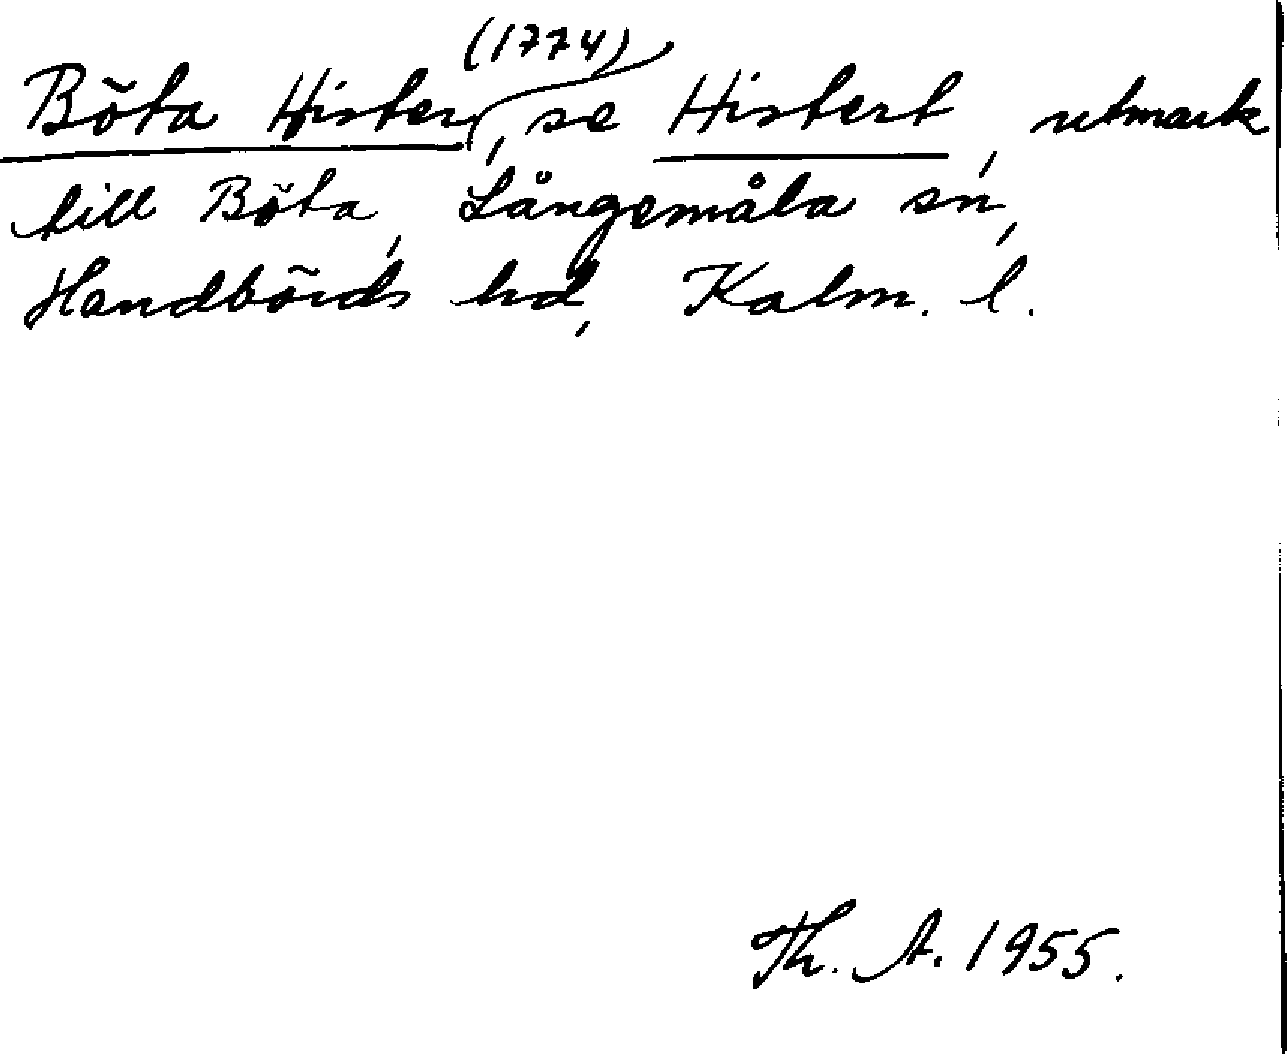 Böta Hister (1774), se Histert, utmark
till Böta, Långemåla sn,
Handbörds hd, Kalm. l.
Th. A. 1955.